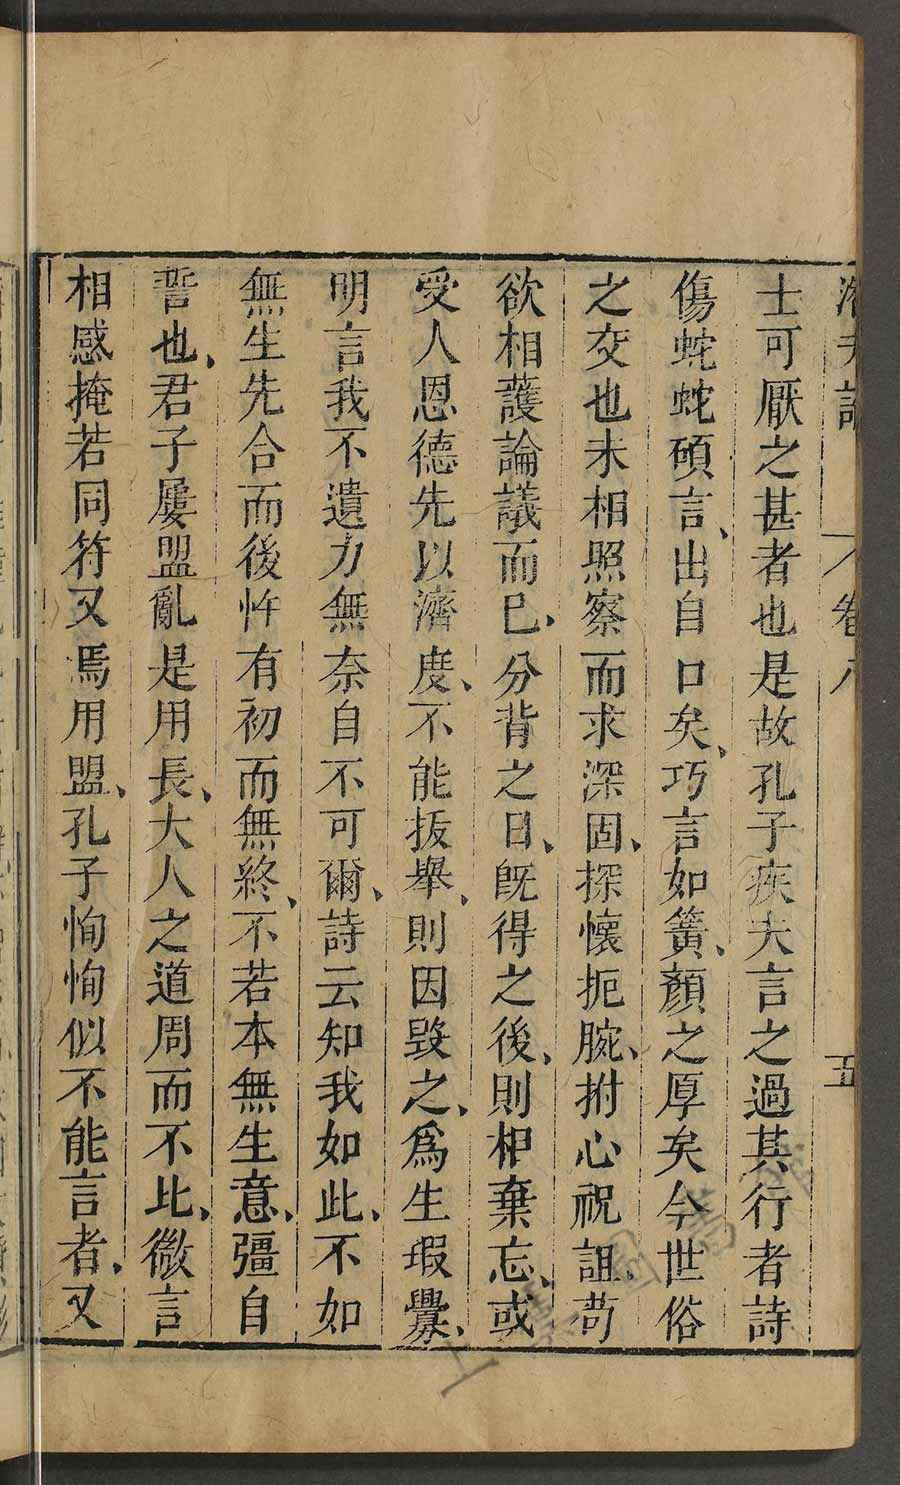 潛夫論 卷八 五
士可厭之甚者也是故孔子疾夫言之過其行者詩
傷蛇蛇碩言、出自口矣、巧言如簧、顏之厚矣今世俗
之交也未相照察而求深固、探懷扼腕、拊心祝詛、苟
欲相護論議而已、分背之日、既得之後、則相棄忘、或
受人恩德先以濟度、不能拔舉、則因毀之、為生瑕釁、
明言我不遺力無奈自不可爾、詩云知我如此、不如
無生先合而後忤有初而無終、不若本無生意、彊自
誓也、君子屢盟亂是用長、大人之道周而不比、微言
相感掩若同符又焉用盟、孔子恂恂似不能言者、又